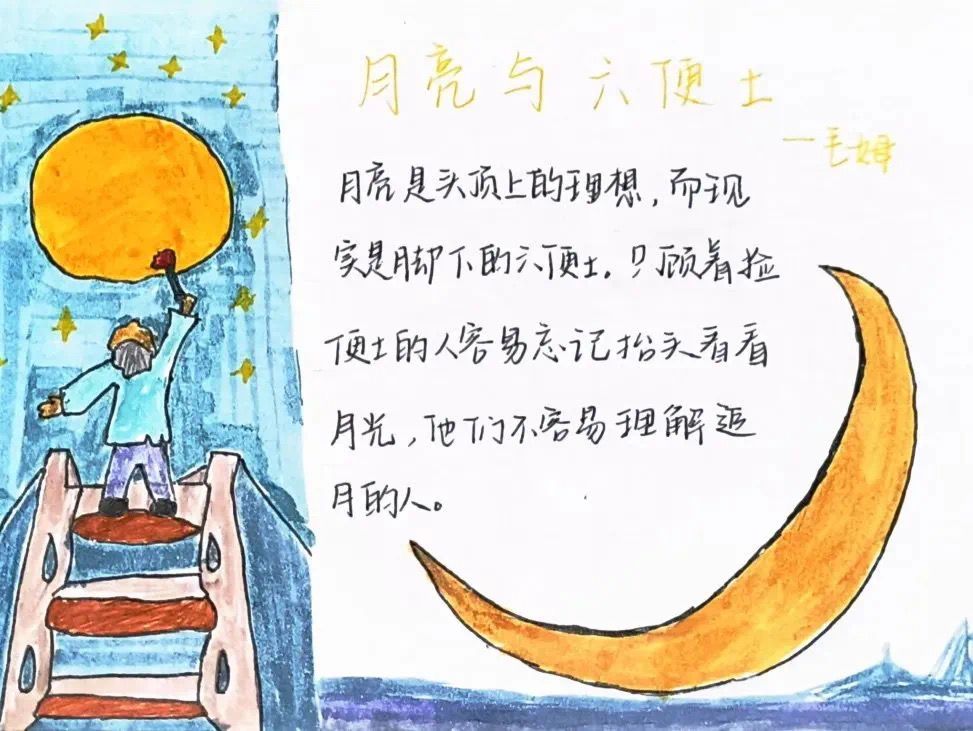 月亮与六便士
—毛姆
月亮是头顶上的理想，而现
实是脚下的六便士。只顾着捡
便士的人容易忘记抬头看看
月光，他们不容易理解追
月的人。